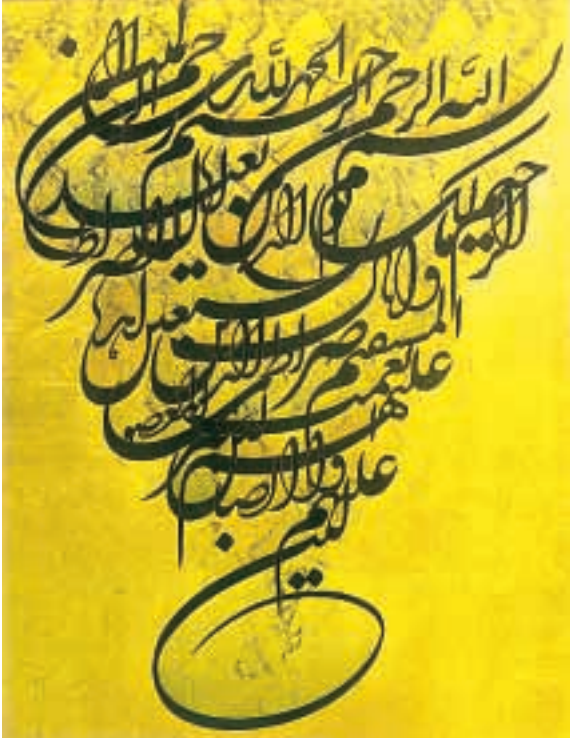 بسم الله الرحمن الرحيم الحمد لله رب العالمين
الرحمن الرحيم مالك يوم الدين اياك نعبد
واياك نستعين اهدنا الصراط
المستقيم صراط الذين
انعمت عليهم غير المغضوب
عليهم ولا الضالين